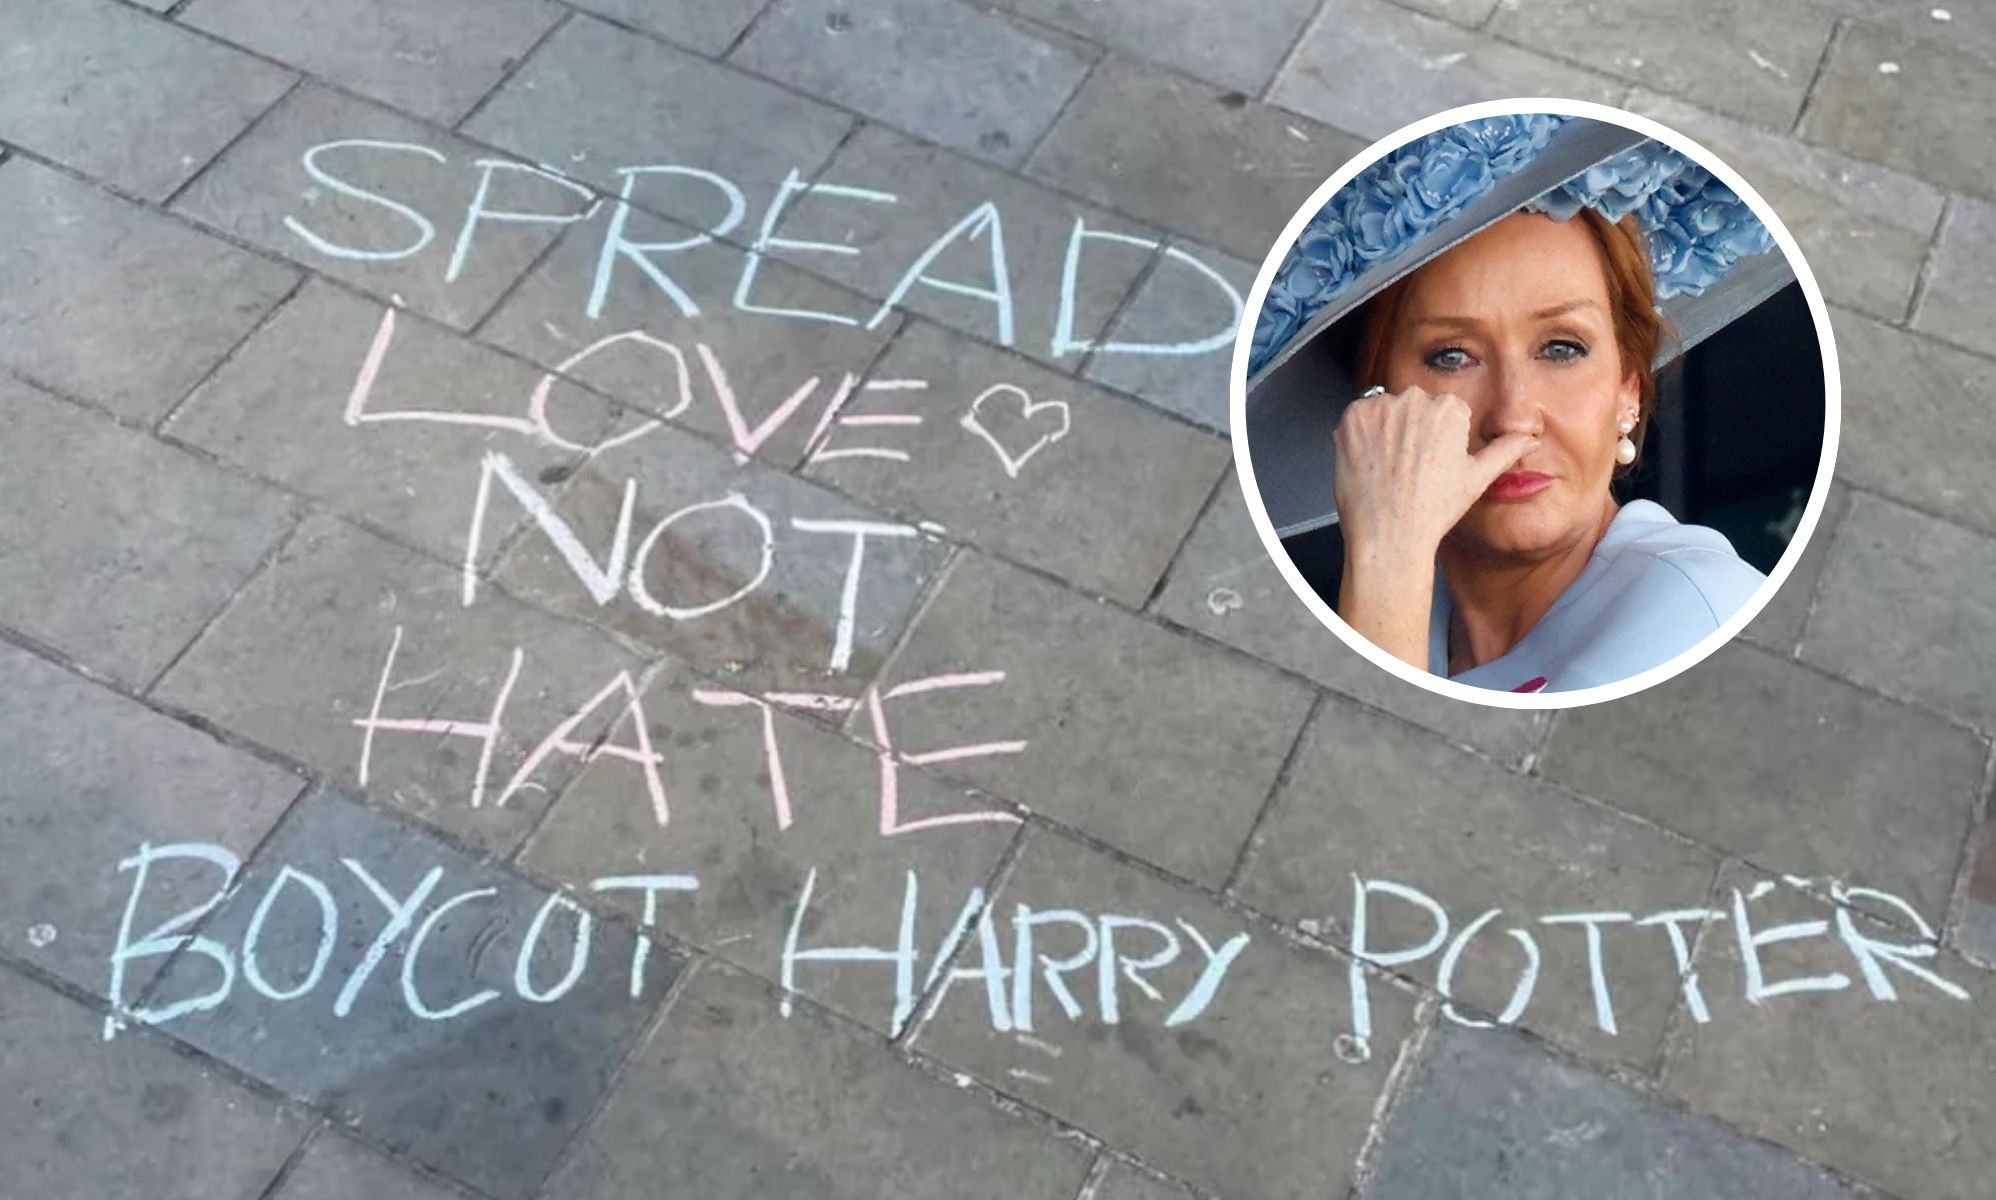 SPREAD
LOVE
NOT
HATE
BOYCOT HARRY POTTER